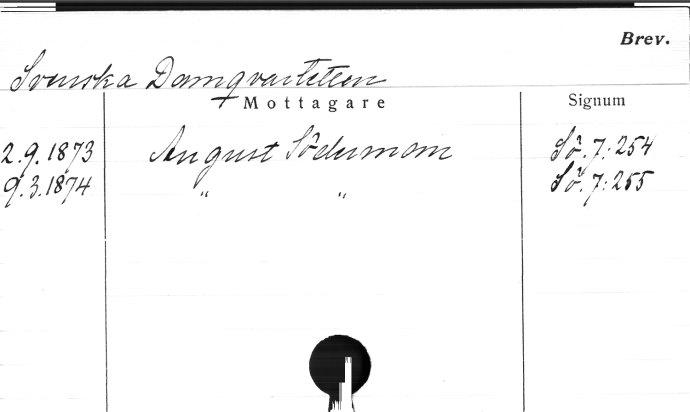 Brev.
Svenska Damqvartetten
Mottagare Signum
2.9.1873 August Söderman Sö. 7:254
9.3.1874 " " Sö. 7:255